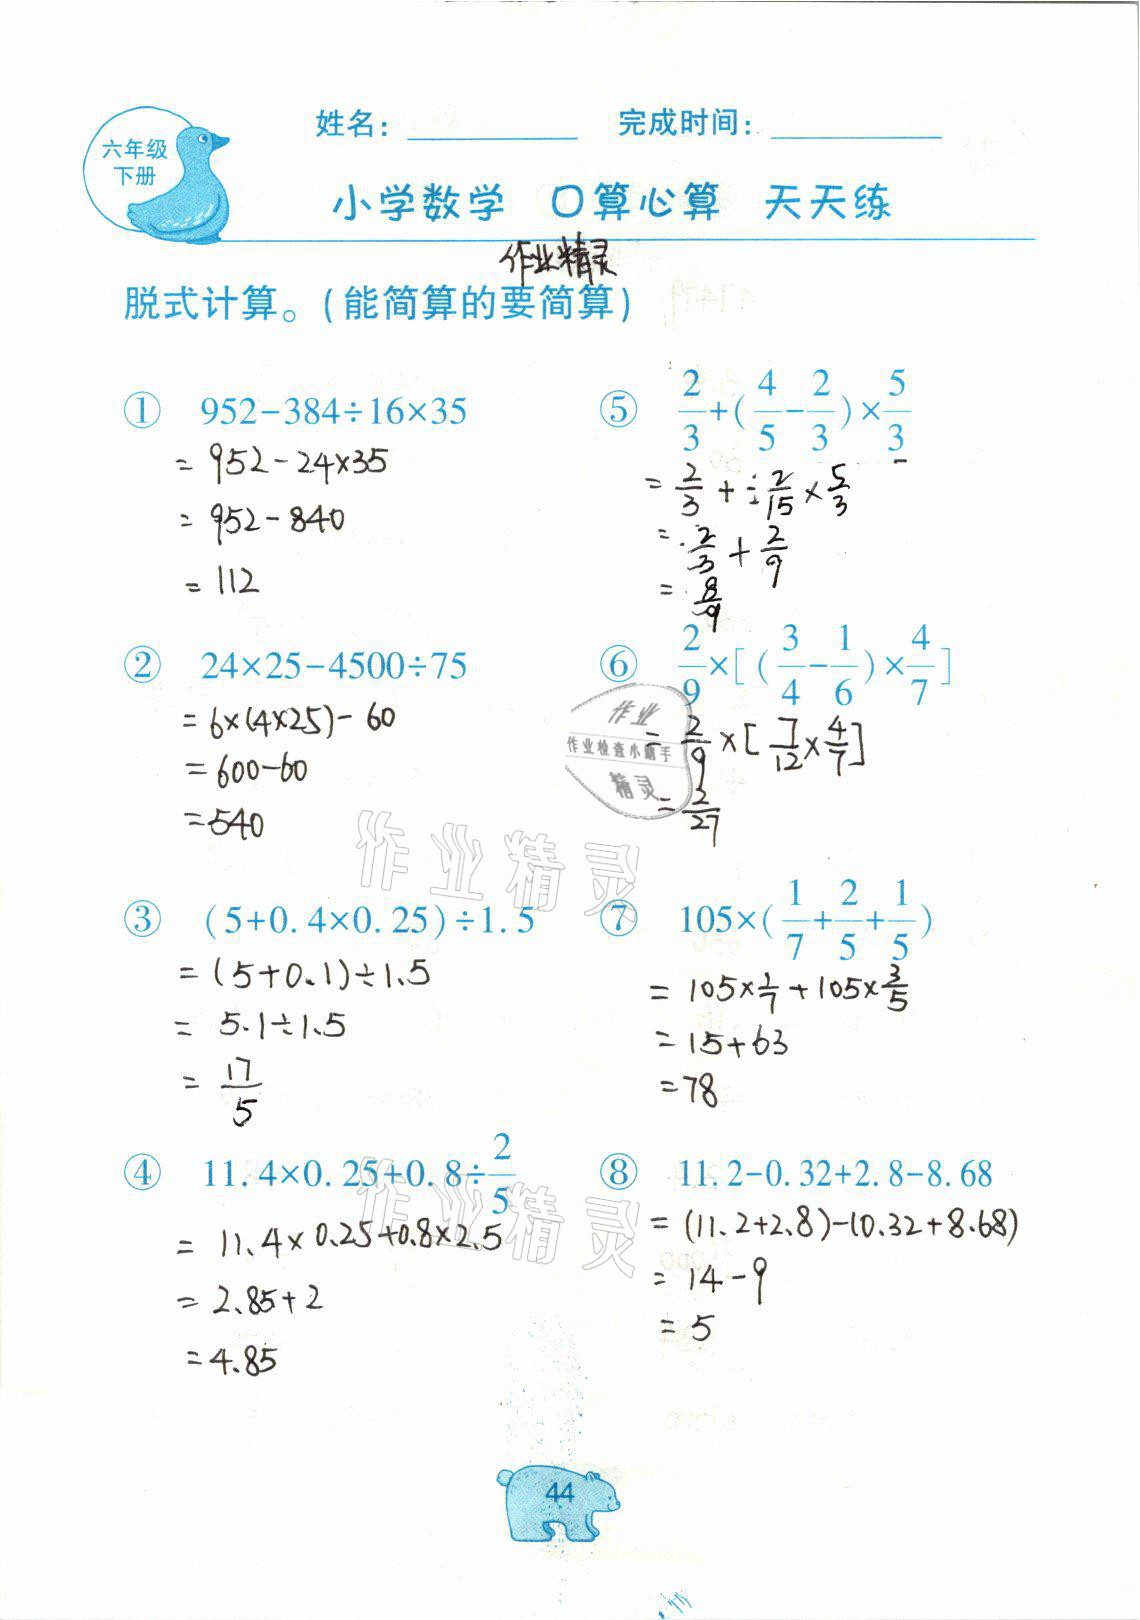 六年级
下册
姓名：________ 完成时间：________
小学数学 口算心算 天天练
作业精灵
脱式计算。(能简算的要简算)
① 952-384÷16×35
= 952-24×35
= 952-840
= 112
② 24×25-4500÷75
= 6×(4×25)-60
= 600-60
= 540
③ (5+0.4×0.25)÷1.5
= (5+0.1)÷1.5
= 5.1÷1.5
= 17/5
④ 11.4×0.25+0.8÷2/5
= 11.4×0.25+0.8×2.5
= 2.85+2
= 4.85
⑤ 2/3+(4/5-2/3)×5/3
= 2/3+÷2/15×5/3
= 2/3+2/9
= 8/9
⑥ 2/9×[(3/4-1/6)×4/7]
= 2/9×[7/12×4/7]
= 2/27
⑦ 105×(1/7+2/5+1/5)
= 105×1/7+105×3/5
= 15+63
= 78
⑧ 11.2-0.32+2.8-8.68
= (11.2+2.8)-(0.32+8.68)
= 14-9
= 5
作业
作业检查小助手
精灵
作业精灵
作业精灵
44